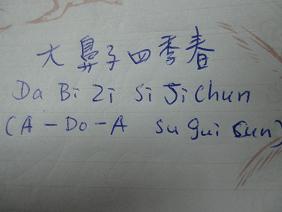 大鼻子四季春
Da Bi Zi Si Ji Chun
(A-Do-A Su Gui Sun)